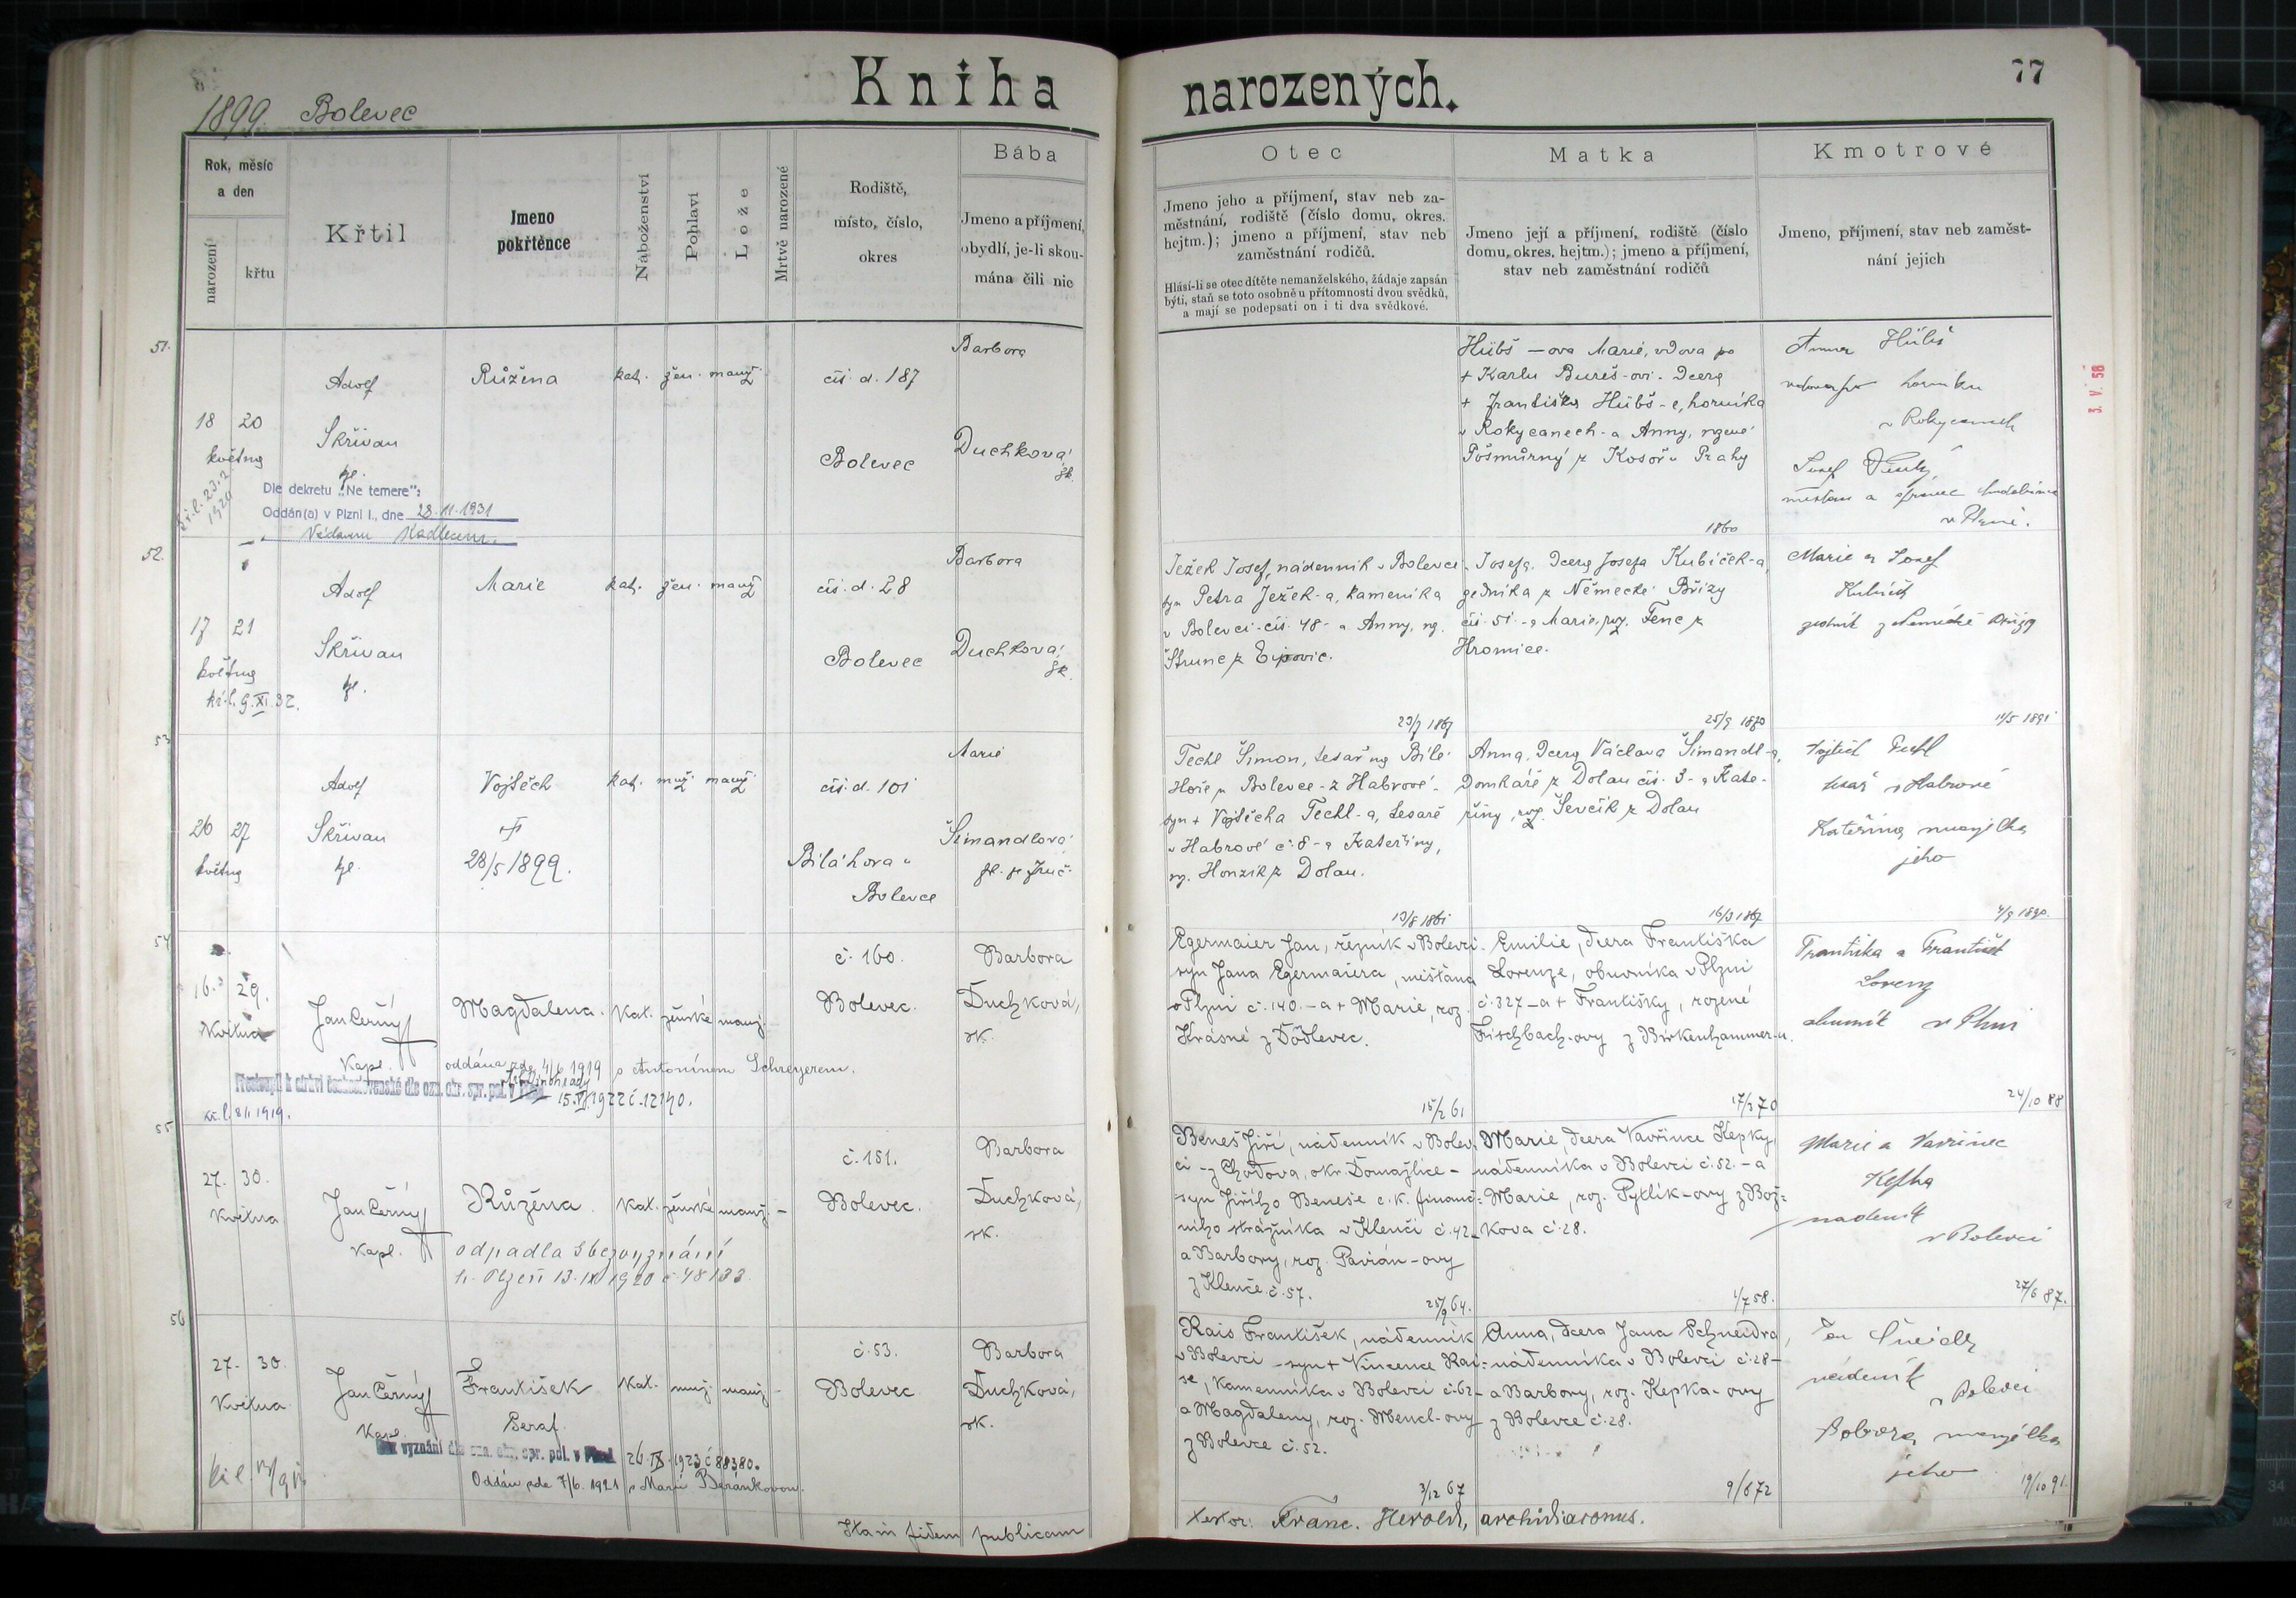 Kniha narozených.
77
1899. Bolevec
Rok, měsíc
a den
narození
křtu
Křtil
Jmeno
pokřtěnce
Náboženství
Pohlaví
Lože
Mrtvě narozené
Rodiště,
místo, číslo,
okres
Bába
Jmeno a příjmení,
obydlí, je-li skou-
mána čili nic
Otec
Jmeno jeho a příjmení, stav neb za-
městnání, rodiště (číslo domu, okres.
hejtm.); jmeno a příjmení, stav neb
zaměstnání rodičů.
Hlásí-li se otec dítěte nemanželského, žádaje zapsán
býti, staň se toto osobně u přítomnosti dvou svědků,
a mají se podepsati on i ti dva svědkové.
Matka
Jmeno její a příjmení, rodiště (číslo
domu, okres. hejtm.); jmeno a příjmení,
stav neb zaměstnání rodičů
Kmotrové
Jmeno, příjmení, stav neb zaměst-
nání jejich
3. V. 58
51.
18 20
května
Adolf
Skřivan
kpl.
Růžena
kat. žen. manž.
čís. d. 187
Bolevec
Barbora
Duchková
zk.
Dle dekretu „Ne temere“:
Oddán(a) v Plzni I., dne 28.11.1931
Kadlecem.
Hübš-ova Marie, vdova po
+ Karlu Bureš-ovi. Dcera
+ Františka Hübš-e, horníka
v Rokycanech-a Anny, rozené
Pošmůrný z Kosoř u Prahy
1860
Anna Hübš
vdova po horníku
v Rokycanech
Josef
v Plzni.
52.
17 21
května
kř. l. 9.XI.32.
Adolf
Skřivan
kpl.
Marie
kat. žen. manž
čís. d. 28
Bolevec
Barbora
Duchková
zk.
Ježek Josef, nádenník v Bolevci
syn Petra Ježek-a, kameníka
v Bolevci-čís. 48-a Anny, roz.
Štrunc z Ejpovic.
23/7 1867
Josefa. Dcera Josefa Kubíček-a,
zedníka z Německé Břízy
čís. 51.-a Marie, roz. Fenc z
Hromice.
25/9 1870
Marie a Josef
Kubíček
zedník z Německé Břízy
11/5 1891
53
26 27
května
Adolf
Skřivan
kpl.
Vojtěch
28/5 1899.
kat. muž. manž.
čís. d. 101
Bílá hora u
Bolevce
Marie
Šimandlová
Techl Šimon, tesař na Bílé
Hoře u Bolevce-z Habrové-
syn + Vojtěcha Techl-a, tesaře
v Habrové č. 8-a Kateřiny,
roz. Honzík z Dolan.
13/8 1861
Anna, Dcera Václava Šimandl-a,
Domkáře z Dolan čís. 3-a Kate-
řiny, roz. Ševčík z Dolan
16/3 1867
Vojtěch Techl
tesař v Habrové
Kateřina manželka
jeho
4/9 1890.
54
16. 29.
května
Jan Černý
kapl.
Magdalena.
kat. ženské manž.
č. 160.
Bolevec.
Barbora
Duchková,
zk.
oddána zde 4/6 1919 s Antonínem Schreyerem.
Přestoupil k církvi československé dle ozn. okr. spr. pol. v Plzni
15.VI.1922 č. 12140.
kř. l. 8/1 1919.
Egermaier Jan, řezník v Bolevci-
syn Jana Egermaiera, měšťana
v Plzni č. 140.-a + Marie, roz.
Krásné z Doudlevec.
15/2 61
Emilie, dcera Františka
Lorenze, obuvníka v Plzni
č. 327-a + Františky, rozené
Fischbach-ovy z Birkenhammer-u.
17/2 70
Františka a František
Lorenz
obuvník v Plzni
24/10 88
55
27. 30.
května
Jan Černý
kapl.
Růžena.
kat. ženské manž. -
č. 151.
Bolevec.
Barbora
Duchková,
zk.
odpadla s bezvyznání
h. Plzeň 13.IX 1920 č. 48133
Beneš Jiří, nádenník v Bolev-
ci-z Chodova, okr. Domažlice-
syn Jiřího Beneše c. k. finanč-
ního strážníka v Klenčí č. 42-
a Barbory, roz. Pavián-ovy
z Klenče č. 57.
25/9 64.
Marie, dcera Vavřince Kepky,
nádenníka v Bolevci č. 52.-a
Marie, roz. Pytlík-ovy z Bož-
kova č. 28.
1/7 58.
Marie a Vavřinec
Kepka
nádeník
v Bolevci
27/6 87.
56
27. 30.
května
Jan Černý
kapl.
František
Seraf.
kat. muž. manž. -
č. 53.
Bolevec
Barbora
Duchková,
zk.
Bez vyznání dle ozn. okr. spr. pol. v Plzni 26.IX.1923 č 88380.
Oddán zde 7/6. 1921 s Marií Beránkovou.
Rais František, nádenník
v Bolevci-syn + Vincence Rai-
se, kamenníka v Bolevci č. 62-
a Magdaleny, roz. Mencl-ovy
z Bolevce č. 52.
3/12 67
Anna, dcera Jana Schneidra,
nádenníka v Bolevci č. 28-
a Barbory, roz. Kepka-ovy
z Bolevce č. 28.
9/6 72
Jan Šneidr
nádeník
v Bolevci
Barbora manželka
jeho
19/10 91.
Ita in fidem publicam
testor: Franc. Herold, archidiaconus.